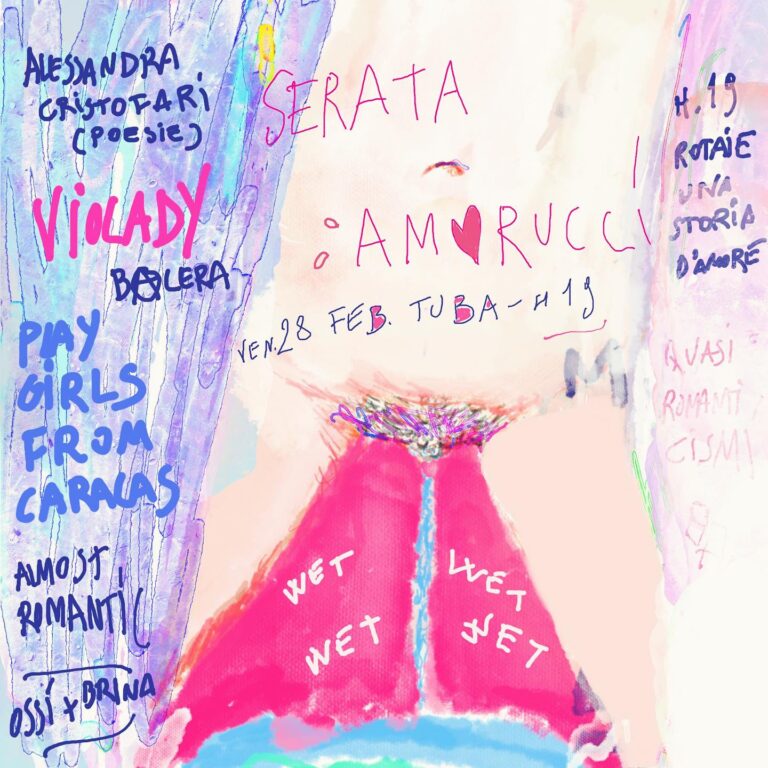 ALESSANDRA
CRISTOFARI
(POESIE)
VIOLADY
BALERA
PLAY
GIRLS
FROM
CARACAS
ALMOST
ROMANTIC
OSSÍ + BRINA
SERATA
:AM♥RUCCI
VEN. 28 FEB. TUBA - H 19
WET WET
WET WET
H. 19
ROTAIE
UNA
STORIA
D'AMORE
QUASI
ROMANTI
CISMI